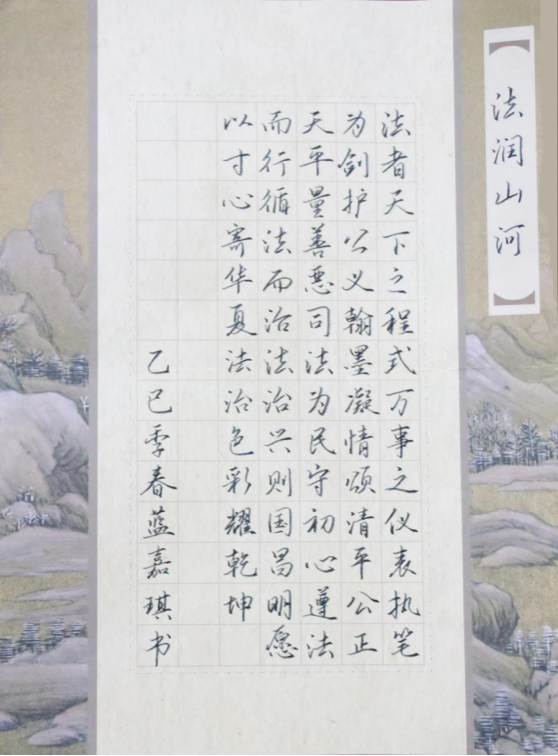 法润山河
法者天下之程式万事之仪表执笔
为剑护公义翰墨凝情颂清平公正
天平量善恶司法为民守初心遵法
而行循法而治法治兴则国昌明愿
以寸心寄华夏法治色彩耀乾坤
乙巳季春蓝嘉琪书